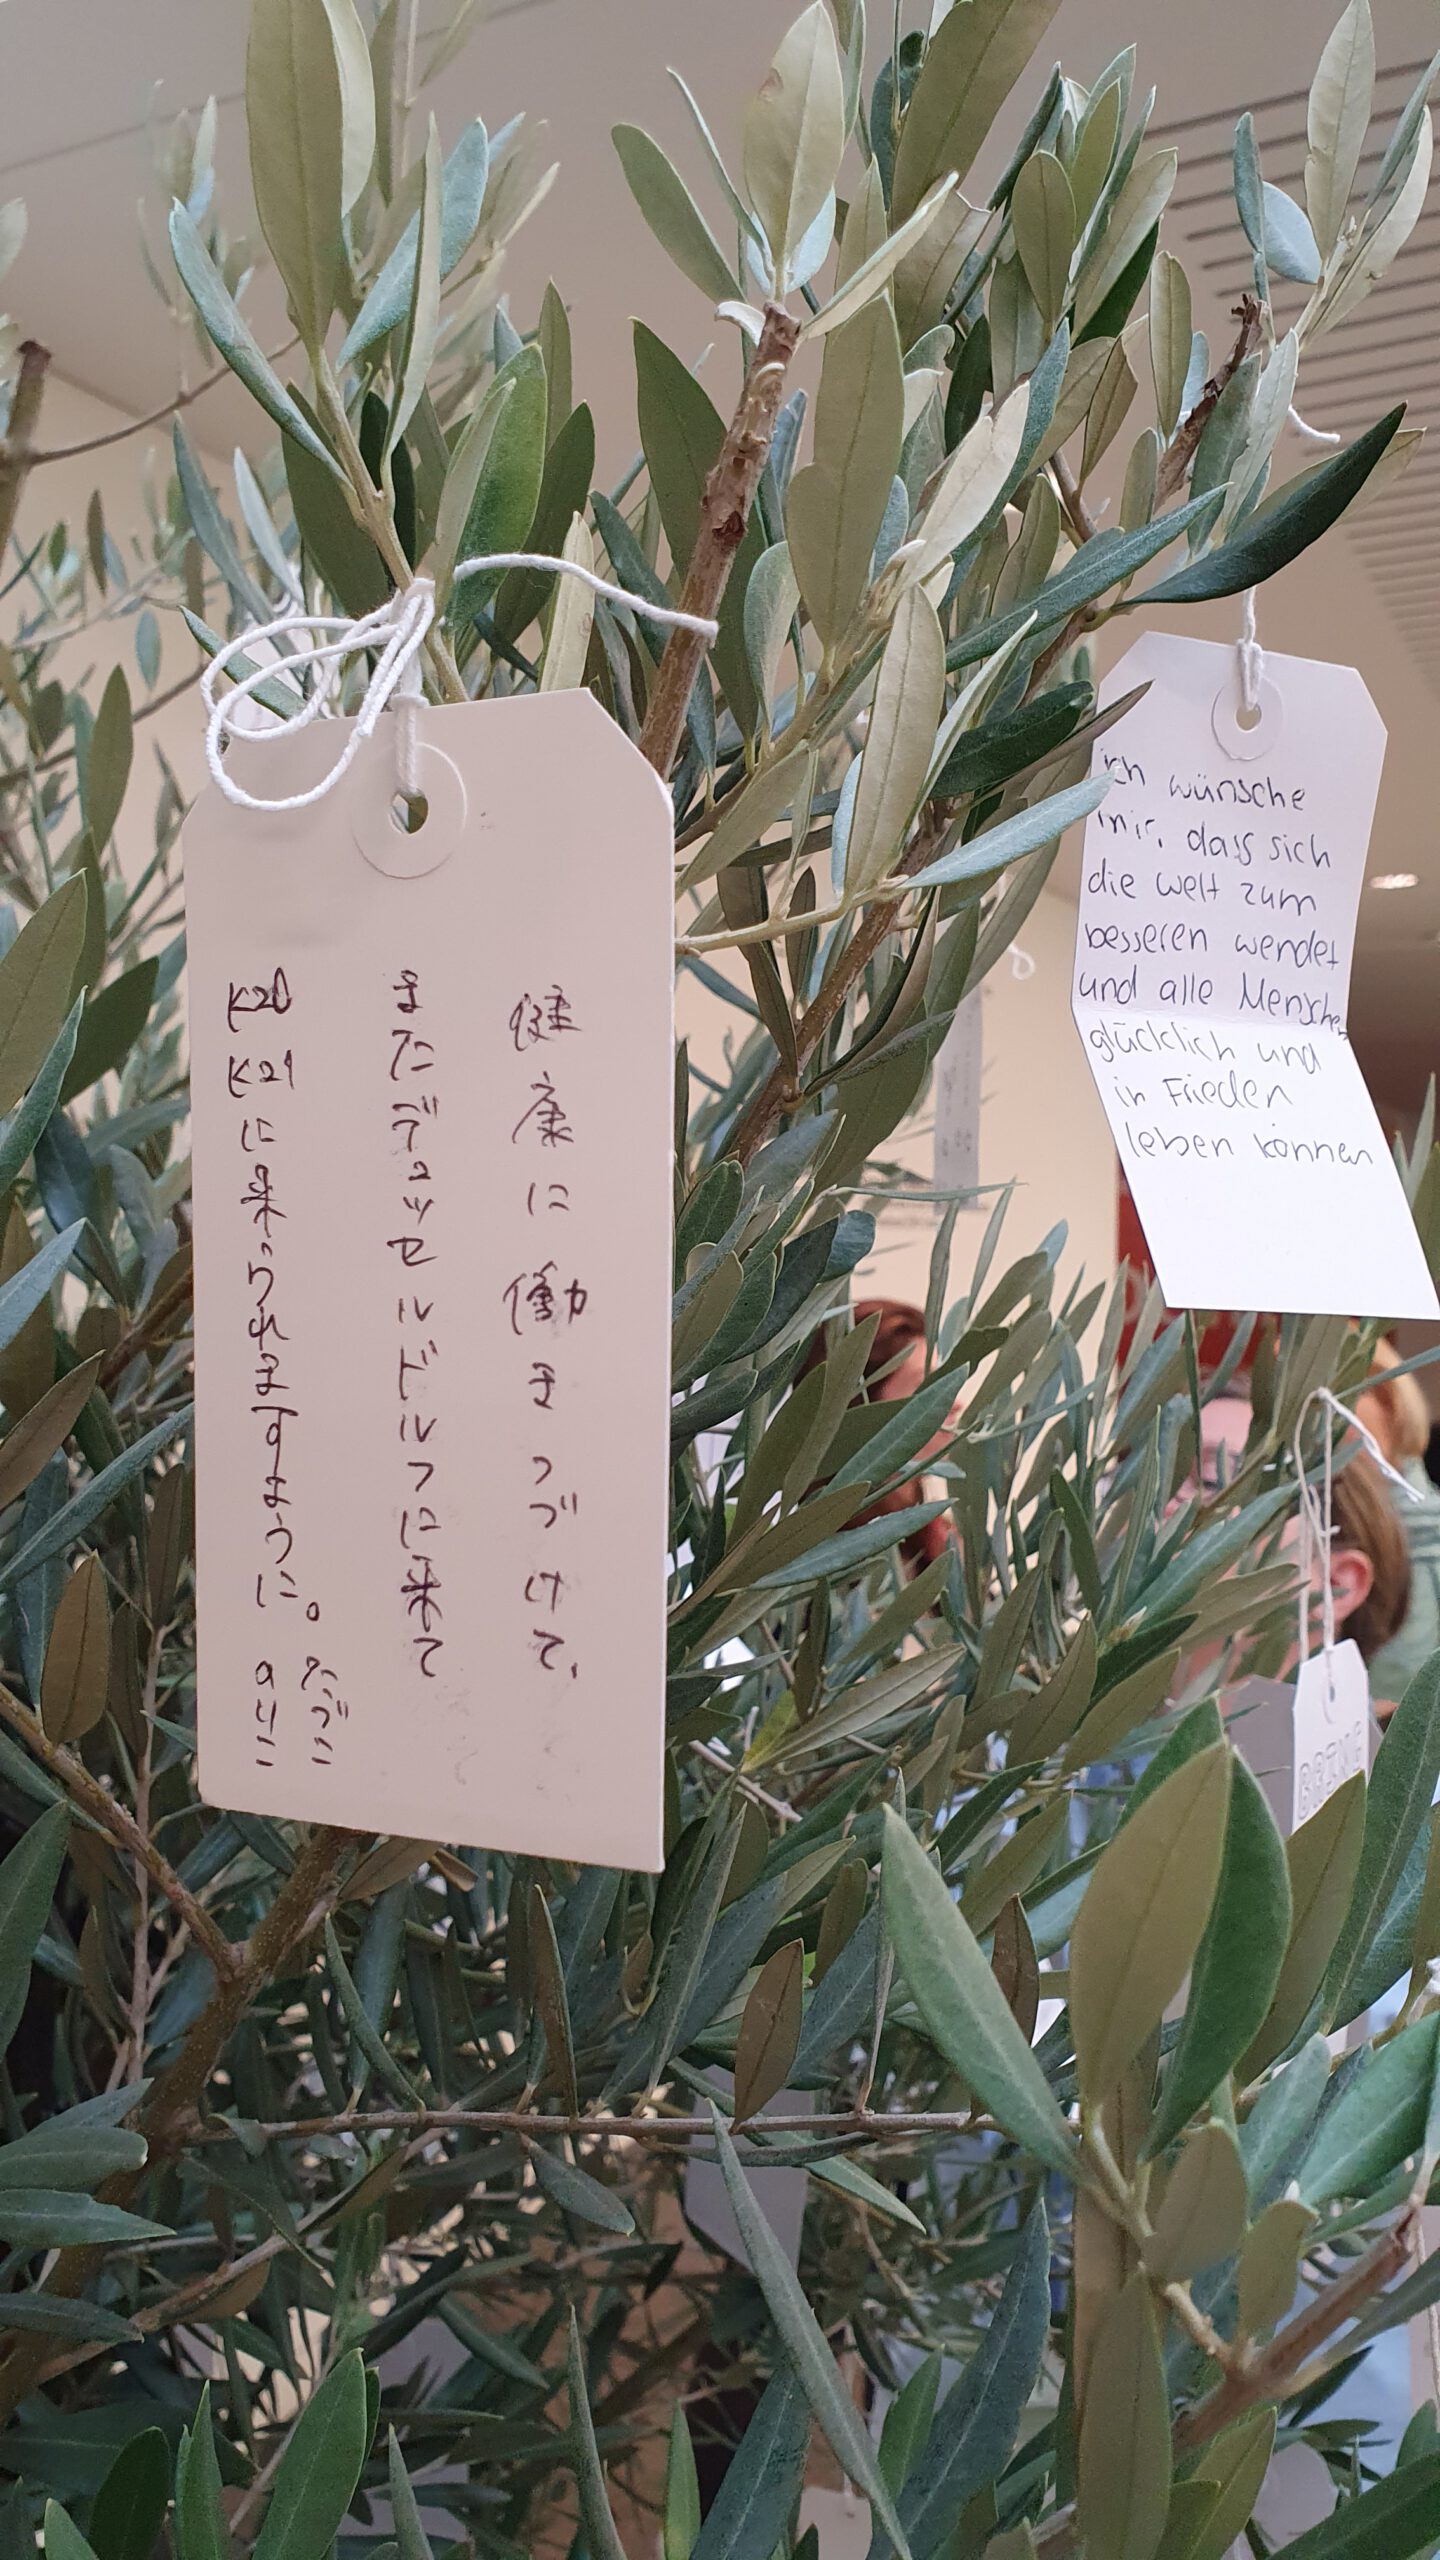 健康に働きつづけて、
またデュッセルドルフに来て
K20 K21に来られますように。
ich wünsche
mir, dass sich
die Welt zum
besseren wendet
und alle Menschen
glücklich und
in Frieden
leben können
BRING